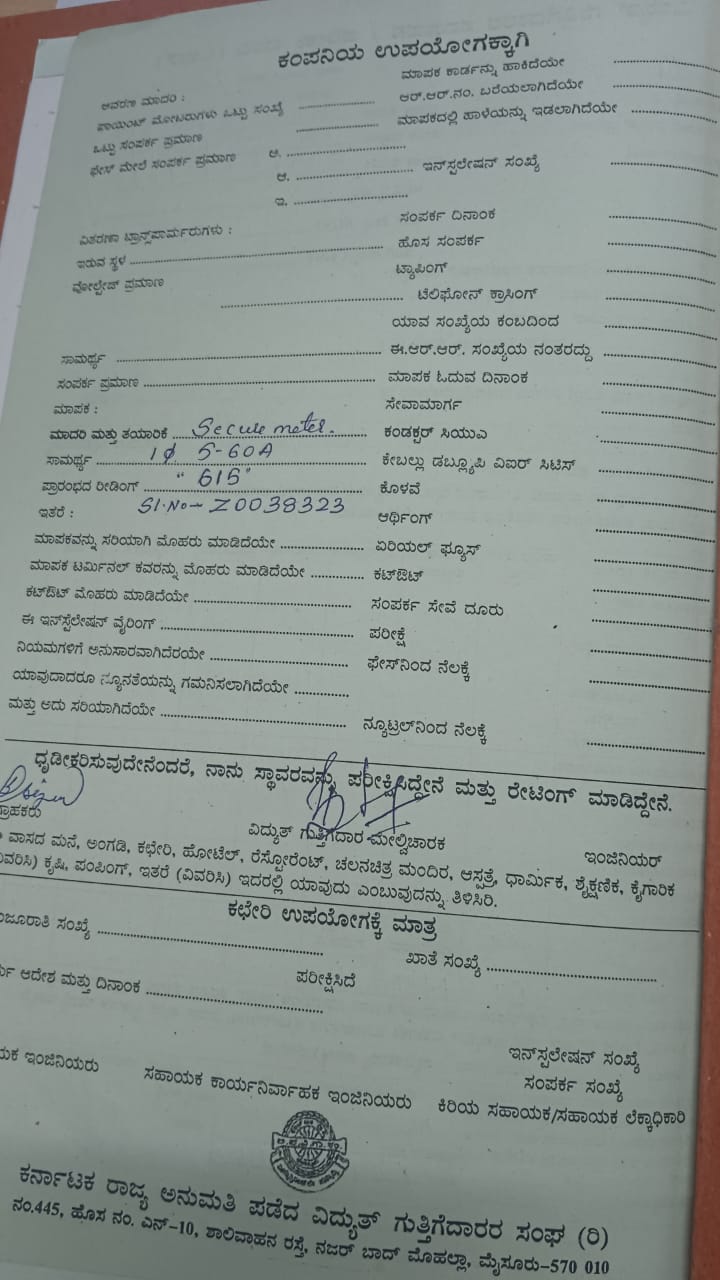 ಕಂಪನಿಯ ಉಪಯೋಗಕ್ಕಾಗಿ
ಆವರಣ ಮಾದರಿ : ಮಾಪಕ ಕಾರ್ಡನ್ನು ಹಾಕಿದೆಯೇ
ಪಾಯಿಂಟ್ ಮೋಟರುಗಳು ಒಟ್ಟು ಸಂಖ್ಯೆ ಆರ್.ಆರ್.ನಂ. ಬರೆಯಲಾಗಿದೆಯೇ
ಒಟ್ಟು ಸಂಪರ್ಕ ಪ್ರಮಾಣ ಮಾಪಕದಲ್ಲಿ ಹಾಳೆಯನ್ನು ಇಡಲಾಗಿದೆಯೇ
ಫೇಸ್ ಮೇಲೆ ಸಂಪರ್ಕ ಪ್ರಮಾಣ ಅ.
ಆ. ಇನ್‌ಸ್ಟಲೇಷನ್ ಸಂಖ್ಯೆ
ಇ.
ಸಂಪರ್ಕ ದಿನಾಂಕ
ವಿತರಣಾ ಟ್ರಾನ್ಸ್‌ಫಾರ್ಮರುಗಳು : ಹೊಸ ಸಂಪರ್ಕ
ಇರುವ ಸ್ಥಳ ಟ್ಯಾಪಿಂಗ್
ವೋಲ್ಟೇಜ್ ಪ್ರಮಾಣ ಟೆಲಿಫೋನ್ ಕ್ರಾಸಿಂಗ್
ಯಾವ ಸಂಖ್ಯೆಯ ಕಂಬದಿಂದ
ಸಾಮರ್ಥ್ಯ ಈ.ಆರ್.ಆರ್. ಸಂಖ್ಯೆಯ ನಂತರದ್ದು
ಸಂಪರ್ಕ ಪ್ರಮಾಣ ಮಾಪಕ ಓದುವ ದಿನಾಂಕ
ಮಾಪಕ : ಸೇವಾಮಾರ್ಗ
ಮಾದರಿ ಮತ್ತು ತಯಾರಿಕೆ Secure meter. ಕಂಡಕ್ಟರ್ ಸಿಯುಎ
ಸಾಮರ್ಥ್ಯ 1φ 5-60A ಕೇಬಲ್ಲು ಡಬ್ಲ್ಯೂಪಿ ವಿಐರ್ ಸಿಟಿಸ್
ಪ್ರಾರಂಭದ ರೀಡಿಂಗ್ "615" ಕೊಳವೆ
ಇತರೆ : Sl.No- Z0038323 ಆರ್ಥಿಂಗ್
ಮಾಪಕವನ್ನು ಸರಿಯಾಗಿ ಮೊಹರು ಮಾಡಿದೆಯೇ ಏರಿಯಲ್ ಫ್ಯೂಸ್
ಮಾಪಕ ಟರ್ಮಿನಲ್ ಕವರನ್ನು ಮೊಹರು ಮಾಡಿದೆಯೇ ಕಟ್‌ಔಟ್
ಕಟ್‌ಔಟ್ ಮೊಹರು ಮಾಡಿದೆಯೇ ಸಂಪರ್ಕ ಸೇವೆ ದೂರು
ಈ ಇನ್‌ಸ್ಟೆಲೇಷನ್ ವೈರಿಂಗ್ ಪರೀಕ್ಷೆ
ನಿಯಮಗಳಿಗೆ ಅನುಸಾರವಾಗಿದೆರಯೇ ಫೇಸ್‌ನಿಂದ ನೆಲಕ್ಕೆ
ಯಾವುದಾದರೂ ನ್ಯೂನತೆಯನ್ನು ಗಮನಿಸಲಾಗಿದೆಯೇ
ಮತ್ತು ಅದು ಸರಿಯಾಗಿದೆಯೇ ನ್ಯೂಟ್ರಲ್‌ನಿಂದ ನೆಲಕ್ಕೆ
ಧೃಡೀಕರಿಸುವುದೇನೆಂದರೆ, ನಾನು ಸ್ಥಾವರವನ್ನು ಪರೀಕ್ಷಿಸಿದ್ದೇನೆ ಮತ್ತು ರೇಟಿಂಗ್ ಮಾಡಿದ್ದೇನೆ.
ಗ್ರಾಹಕರು ವಿದ್ಯುತ್ ಗುತ್ತಿಗೆದಾರ ಮೇಲ್ವಿಚಾರಕ ಇಂಜಿನಿಯರ್
ವಾಸದ ಮನೆ, ಅಂಗಡಿ, ಕಛೇರಿ, ಹೋಟೆಲ್, ರೆಸ್ಟೋರೆಂಟ್, ಚಲನಚಿತ್ರ ಮಂದಿರ, ಆಸ್ಪತ್ರೆ, ಧಾರ್ಮಿಕ, ಶೈಕ್ಷಣಿಕ, ಕೈಗಾರಿಕ
ವಿವರಿಸಿ) ಕೃಷಿ, ಪಂಪಿಂಗ್, ಇತರೆ (ವಿವರಿಸಿ) ಇದರಲ್ಲಿ ಯಾವುದು ಎಂಬುವುದನ್ನು ತಿಳಿಸಿರಿ.
ಕಛೇರಿ ಉಪಯೋಗಕ್ಕೆ ಮಾತ್ರ
ಜೂರಾತಿ ಸಂಖ್ಯೆ ಖಾತೆ ಸಂಖ್ಯೆ
ಆದೇಶ ಮತ್ತು ದಿನಾಂಕ ಪರೀಕ್ಷಿಸಿದೆ
ಇನ್‌ಸ್ಟಲೇಷನ್ ಸಂಖ್ಯೆ
ಸಂಪರ್ಕ ಸಂಖ್ಯೆ
ಯಕ ಇಂಜಿನಿಯರು ಸಹಾಯಕ ಕಾರ್ಯನಿರ್ವಾಹಕ ಇಂಜಿನಿಯರು ಕಿರಿಯ ಸಹಾಯಕ/ಸಹಾಯಕ ಲೆಕ್ಕಾಧಿಕಾರಿ
ಕರ್ನಾಟಕ ರಾಜ್ಯ ಅನುಮತಿ ಪಡೆದ ವಿದ್ಯುತ್ ಗುತ್ತಿಗೆದಾರರ ಸಂಘ (ರಿ)
ನಂ.445, ಹೊಸ ನಂ. ಎನ್-10, ಶಾಲಿವಾಹನ ರಸ್ತೆ, ನಜರ್ ಬಾದ್ ಮೊಹಲ್ಲಾ, ಮೈಸೂರು-570 010